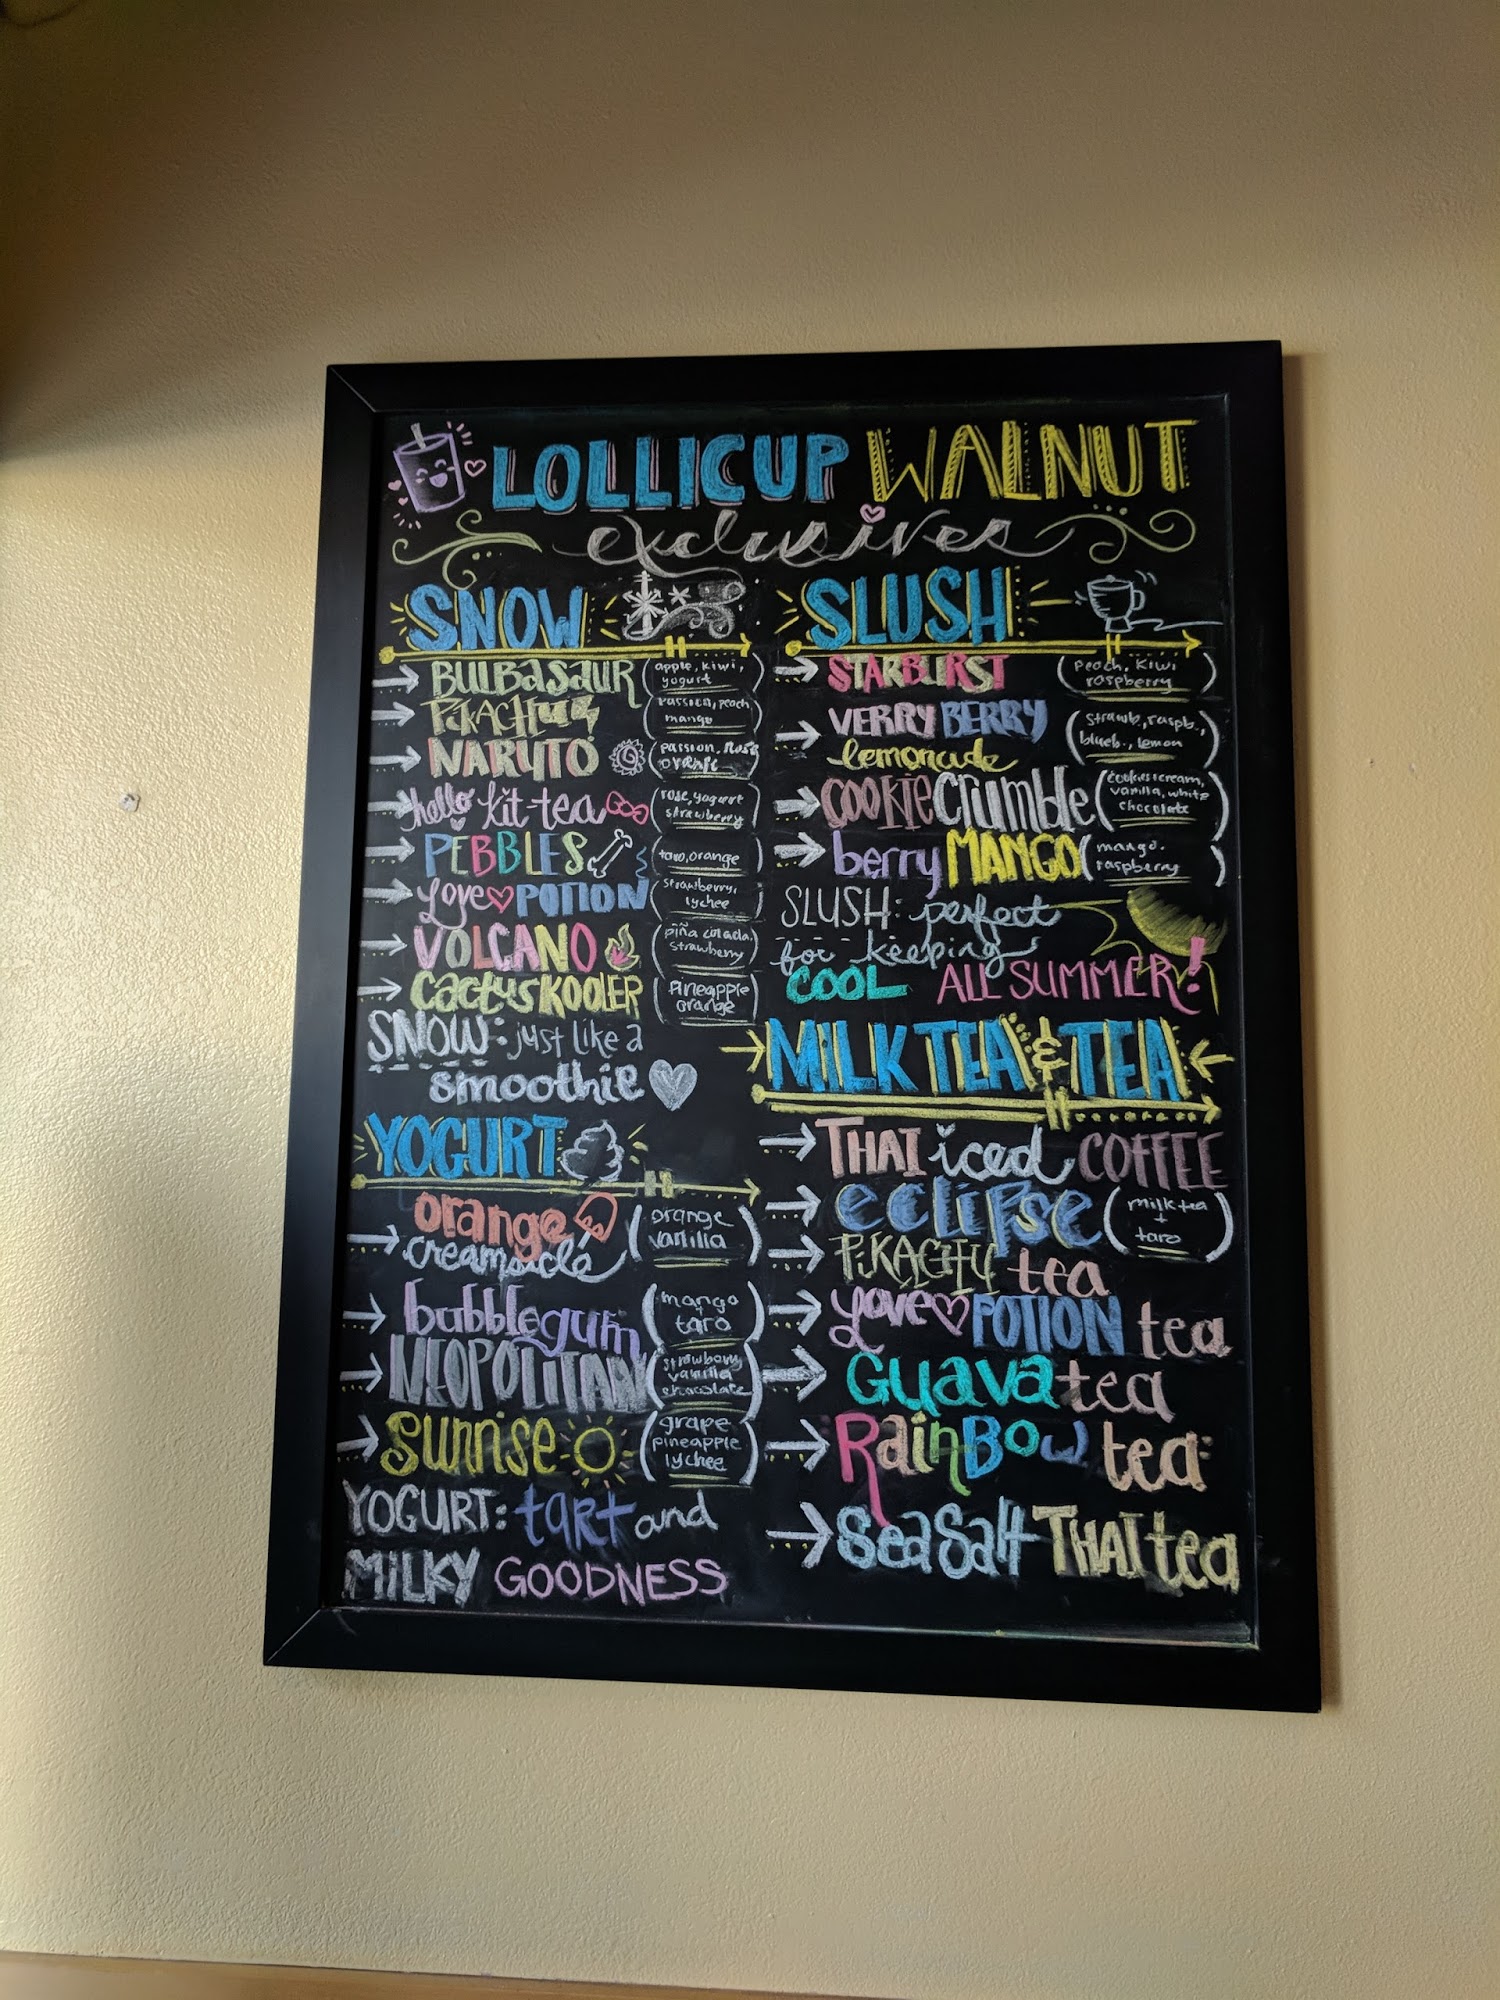 LOLLICUP WALNUT
exclusives
SNOW
BULBASAUR (apple, kiwi, yogurt)
PIKACHU (passion, peach mango)
NARUTO (passion, rose orange)
hello kit-tea (rose, yogurt strawberry)
PEBBLES (taro, orange)
Love POTION (strawberry, lychee)
VOLCANO (piña colada, strawberry)
CACTUS KOOLER (pineapple orange)
SNOW: just like a
smoothie
YOGURT
orange
creamsicle (orange vanilla)
bubblegum (mango + taro)
NEOPOLITAN (strawberry vanilla chocolate)
sunrise (grape pineapple lychee)
YOGURT: tart and
MILKY GOODNESS
SLUSH
STARBURST (peach, kiwi raspberry)
VERRY BERRY
lemonade (strawb, raspb., blueb., lemon)
COOKIE CRUMBLE (cookies cream, vanilla, white chocolate)
berry MANGO (mango, raspberry)
SLUSH: perfect
for keeping
COOL ALL SUMMER!
MILK TEA & TEA
THAI iced COFFEE
eclipse (milk tea + taro)
PIKACHU tea
Love POTION tea
Guava tea
RainBow tea
Sea Salt THAI tea